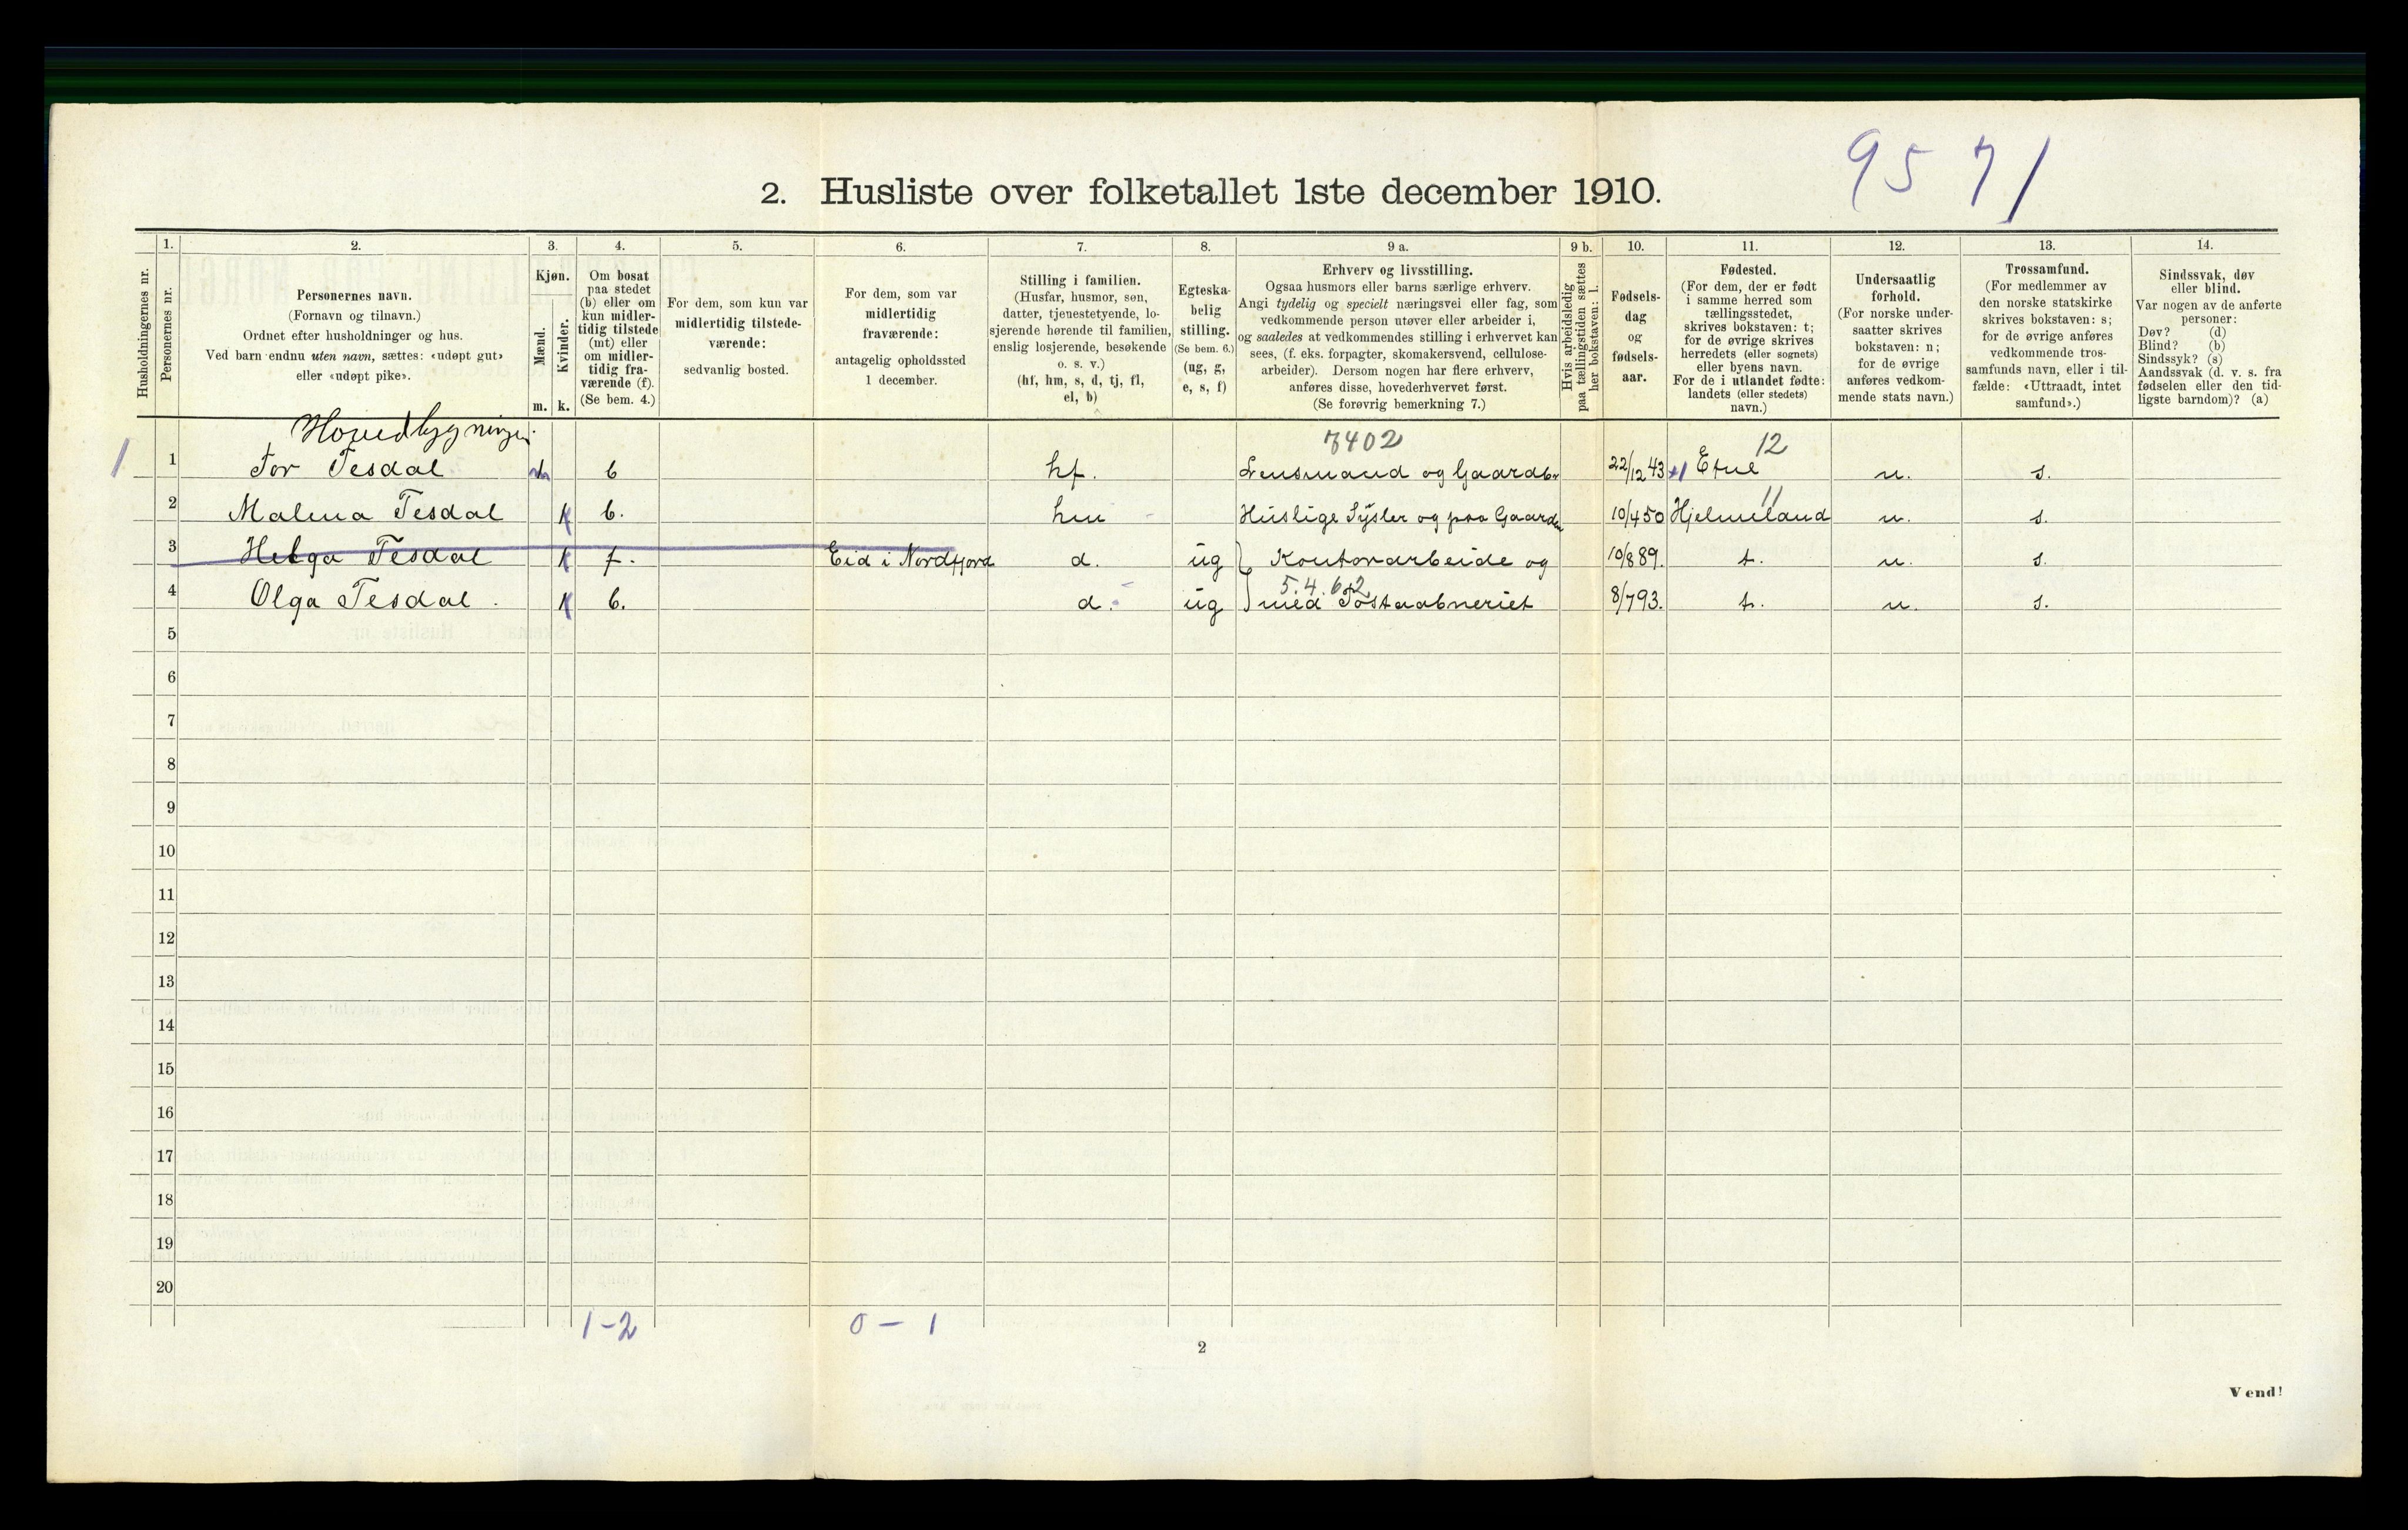 9571
2. Husliste over folketallet 1ste december 1910.
Husholdningernes nr.
1. Personernes nr.
2. Personernes navn.
(Fornavn og tilnavn.)
Ordnet efter husholdninger og hus.
Ved barn endnu uten navn, sættes: «udøpt gut»
eller «udøpt pike».
3. Kjøn.
Mænd. m.
Kvinder. k.
4. Om bosat
paa stedet
(b) eller om
kun midler-
tidig tilstede
(mt) eller
om midler-
tidig fra-
værende (f).
(Se bem. 4.)
5. For dem, som kun var
midlertidig tilstede-
værende:
sedvanlig bosted.
6. For dem, som var
midlertidig
fraværende:
antagelig opholdssted
1 december.
7. Stilling i familien.
(Husfar, husmor, søn,
datter, tjenestetyende, lo-
sjerende hørende til familien,
enslig losjerende, besøkende
o. s. v.)
(hf, hm, s, d, tj, fl,
el, b)
8. Egteska-
belig
stilling.
(Se bem. 6.)
(ug, g,
e, s, f)
9 a. Erhverv og livsstilling.
Ogsaa husmors eller barns særlige erhverv.
Angi tydelig og specielt næringsvei eller fag, som
vedkommende person utøver eller arbeider i,
og saaledes at vedkommendes stilling i erhvervet kan
sees, (f. eks. forpagter, skomakersvend, cellulose-
arbeider). Dersom nogen har flere erhverv,
anføres disse, hovederhvervet først.
(Se forøvrig bemerkning 7.)
9 b. Hvis arbeidsledig
paa tællingstiden sættes
her bokstaven: l.
10. Fødsels-
dag
og
fødsels-
aar.
11. Fødested.
(For dem, der er født
i samme herred som
tællingsstedet,
skrives bokstaven: t;
for de øvrige skrives
herredets (eller sognets)
eller byens navn.
For de i utlandet fødte:
landets (eller stedets)
navn.)
12. Undersaatlig
forhold.
(For norske under-
saatter skrives
bokstaven: n;
for de øvrige
anføres vedkom-
mende stats navn.)
13. Trossamfund.
(For medlemmer av
den norske statskirke
skrives bokstaven: s;
for de øvrige anføres
vedkommende tros-
samfunds navn, eller i til-
fælde: «Uttraadt, intet
samfund».)
14. Sindssvak, døv
eller blind.
Var nogen av de anførte
personer:
Døv? (d)
Blind? (b)
Sindssyk? (s)
Aandssvak (d. v. s. fra
fødselen eller den tid-
ligste barndom)? (a)
Hovedbygningen
7402 12
1 1 Tor Tesdal b hf. Lensmand og Gaardbr 22/12 43 Etne n. s.
11
2 Malena Tesdal k b. hm Huslige Sysler og paa Gaarden 10/4 50 Hjelmeland n. s.
3 Helga Tesdal k f. Eid i Nordfjord d. ug Kontorarbeide og 10/8 89. t. n. s.
5.4.62
4 Olga Tesdal. k b. d. ug med Postaabneriet 8/7 93. t. n. s.
5
6
7
8
9
10
11
12
13
14
15
16
17
18
19
20
1-2 0-1
2
Vend!